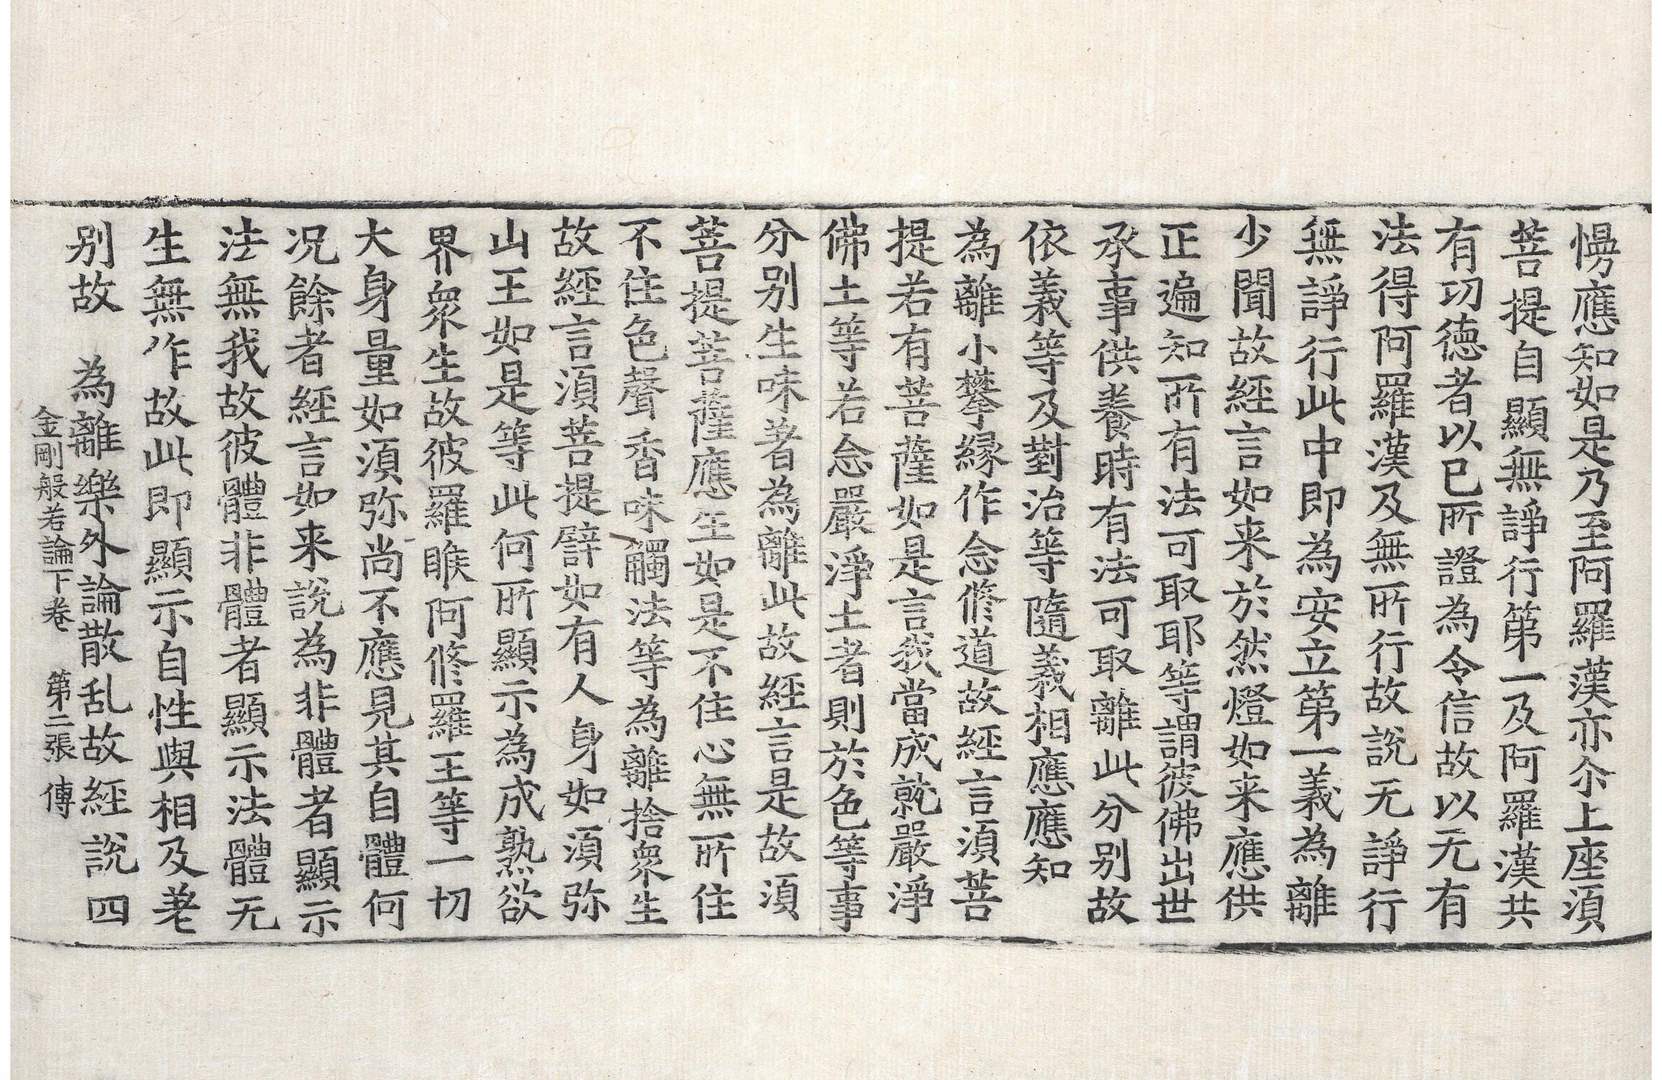 慢應知如是乃至阿羅漢亦尒上座湏
菩提自顯無諍行第一及阿羅漢共
有功德者以已所證為令信故以无有
法得阿羅漢及無所行故說无諍行
無諍行此中即為安立第一義為離
少聞故經言如来於然燈如来應供
正遍知所有法可取耶等謂彼佛出世
承事供養時有法可取離此分别故
依義等及對治等隨義相應應知
為離小攀縁作念修道故經言湏菩
提若有菩薩如是言我當成就嚴淨
佛土等若念嚴淨土者則於色等事
分别生味著為離此故經言是故湏
菩提菩薩應生如是不住心無所住
不住色聲香味觸法等為離捨衆生
故經言湏菩提譬如有人身如湏弥
山王如是等此何所顯示為成熟欲
界衆生故彼羅睺阿修羅王等一切
大身量如湏弥尚不應見其自體何
况餘者經言如来說為非體者顯示
法無我故彼體非體者顯示法體无
生無作故此即顯示自性與相及差
别故　為離樂外論散乱故經說四
金剛般若論下卷　第二張　傳